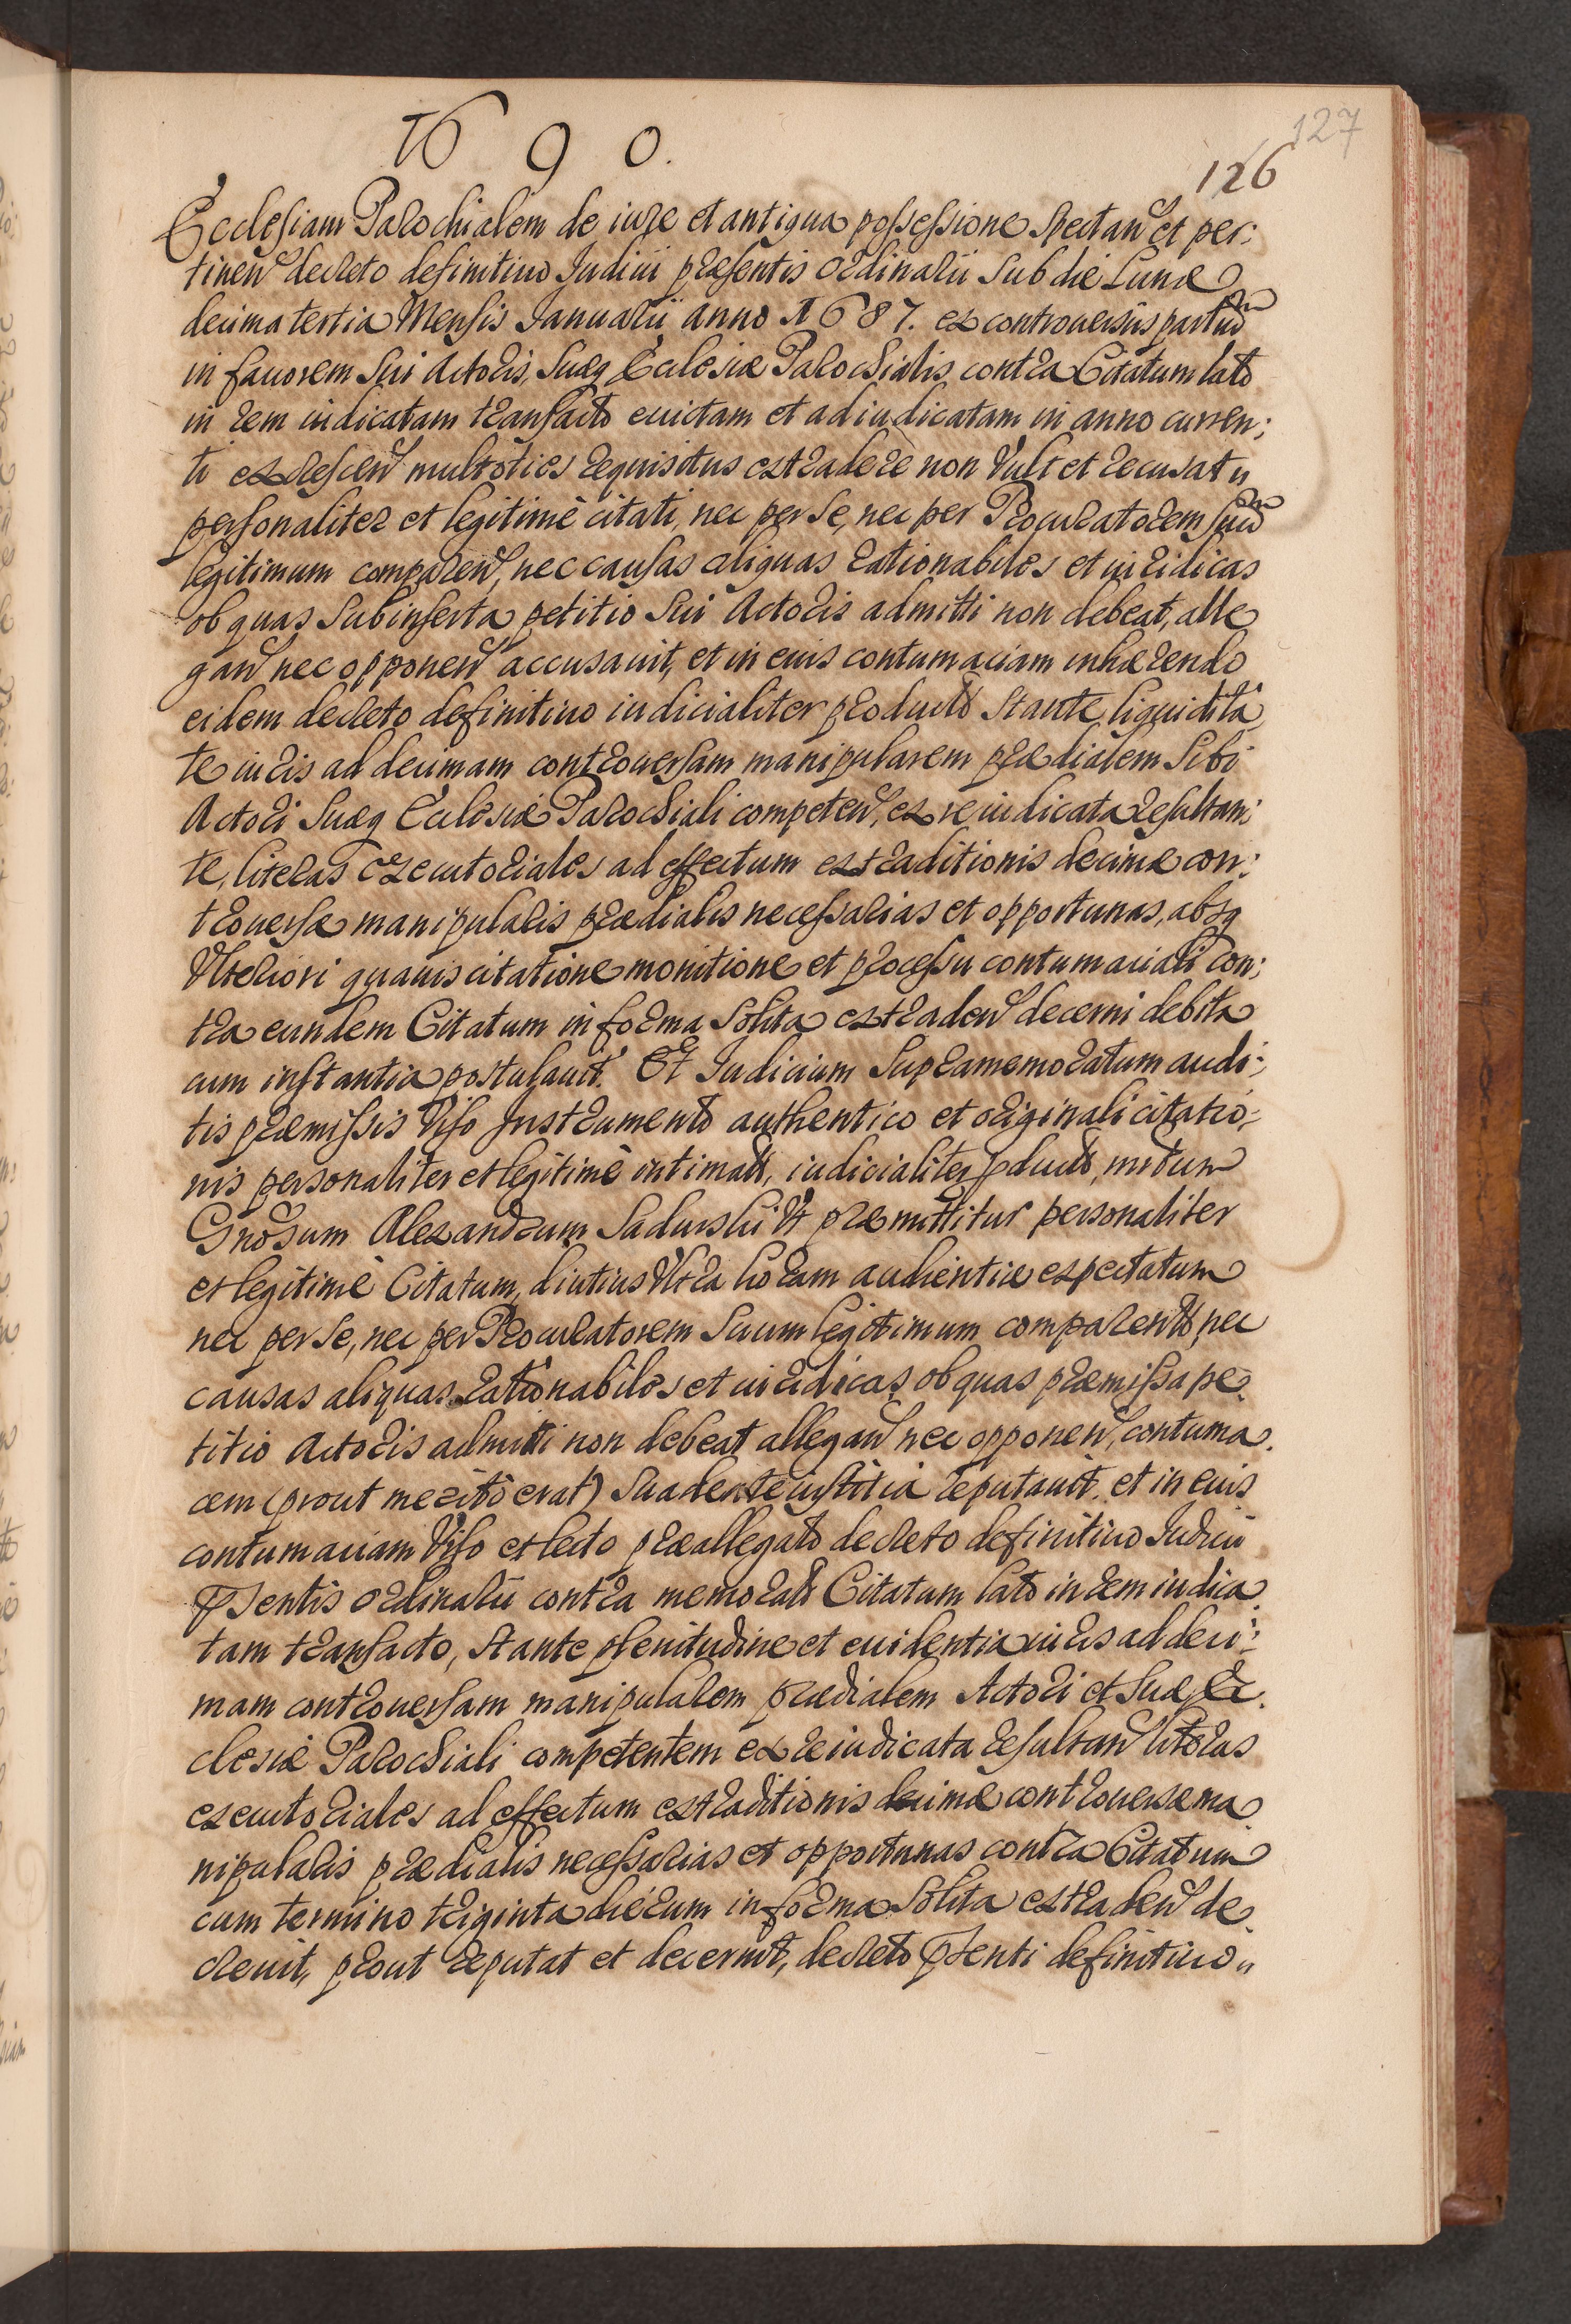 1690.
127
126
Ecclesiam Parochialem de iure et antiqua possessione spectan et per:
tinen decreto definitiuo Iudicii præsentis ordinarii sub die Lunæ
decima tertia Mensis Ianuarii anno 1687. ex controuersiis partiu
in fauorem sui Actoris, suæq Ecclesiæ Parochialis contra Citatum lato
in rem iudicatam transacto euictam et adiudicatam in anno curren:
ti multoties requisitus extradere non vult et recusat
personaliter et legitimè citati, nec per se, nec per Procuratorem suu
legitimum comparen, nec causas aliquas rationabiles et iuridicas
ob quas subinserta petitio sui Actoris admitti non debeat, alle
gan nec opponen accusauit, et in eius contumaciam inhærendo
eidem decreto definitiuo iudicialiter producto stante liquidita
te iuris ad decimam controuersam manipularem prædialem sibi
Actori suæq Ecclesiæ Parochiali competen, ex re iudicata resultan:
te, literas executoriales ad effectum extraditionis decimæ con:
trouersæ manipularis prædialis necessarias et opportunas, absq
Vlteriori quauis citatione monitione et processu contumaciali con:
tra eundem Citatum in forma solita extraden decerni debita
cum instantia postulauit. Et Iudicium supramemoratum audi:
tis præmissis Viso Instrumento authentico et originali citatio:
nis personaliter et legitimè intimato, iudicialiter producto,
Gnosum Alexandrum Sadurski Vt præmittitur personaliter
et legitimè Citatum, diutius Vltra horam audientiæ expectatum
nec per se, nec per Procuratorem suum legitimum comparento, nec
causas aliquas rationabiles et iuridicas ob quas præmissa pe
titio Actoris admitti non debeat allegan nec opponen, contuma
cem (prout meritò erat) suadente iustitia reputauit. et in eius
contumaciam Viso et lecto præallegato decreto definitiuo Iudicii
Psentis ordinarii contra memorato Citatum lato in rem iudica
tam transacto, stante plenitudine et euidentia iuris ad deci:
mam controuersam manipularem prædialem Actori et suæ Ec
clesiæ Parochiali competentem ex re iudicata resultan literas
executoriales ad effectum extraditionis decimæ controuersæ ma
nipularis prædialis necessarias et opportunas contra Citatum
cum termino triginta dierum in forma solita extraden de
creuit, prout reputat et decernit, decreto Psenti definitiuo